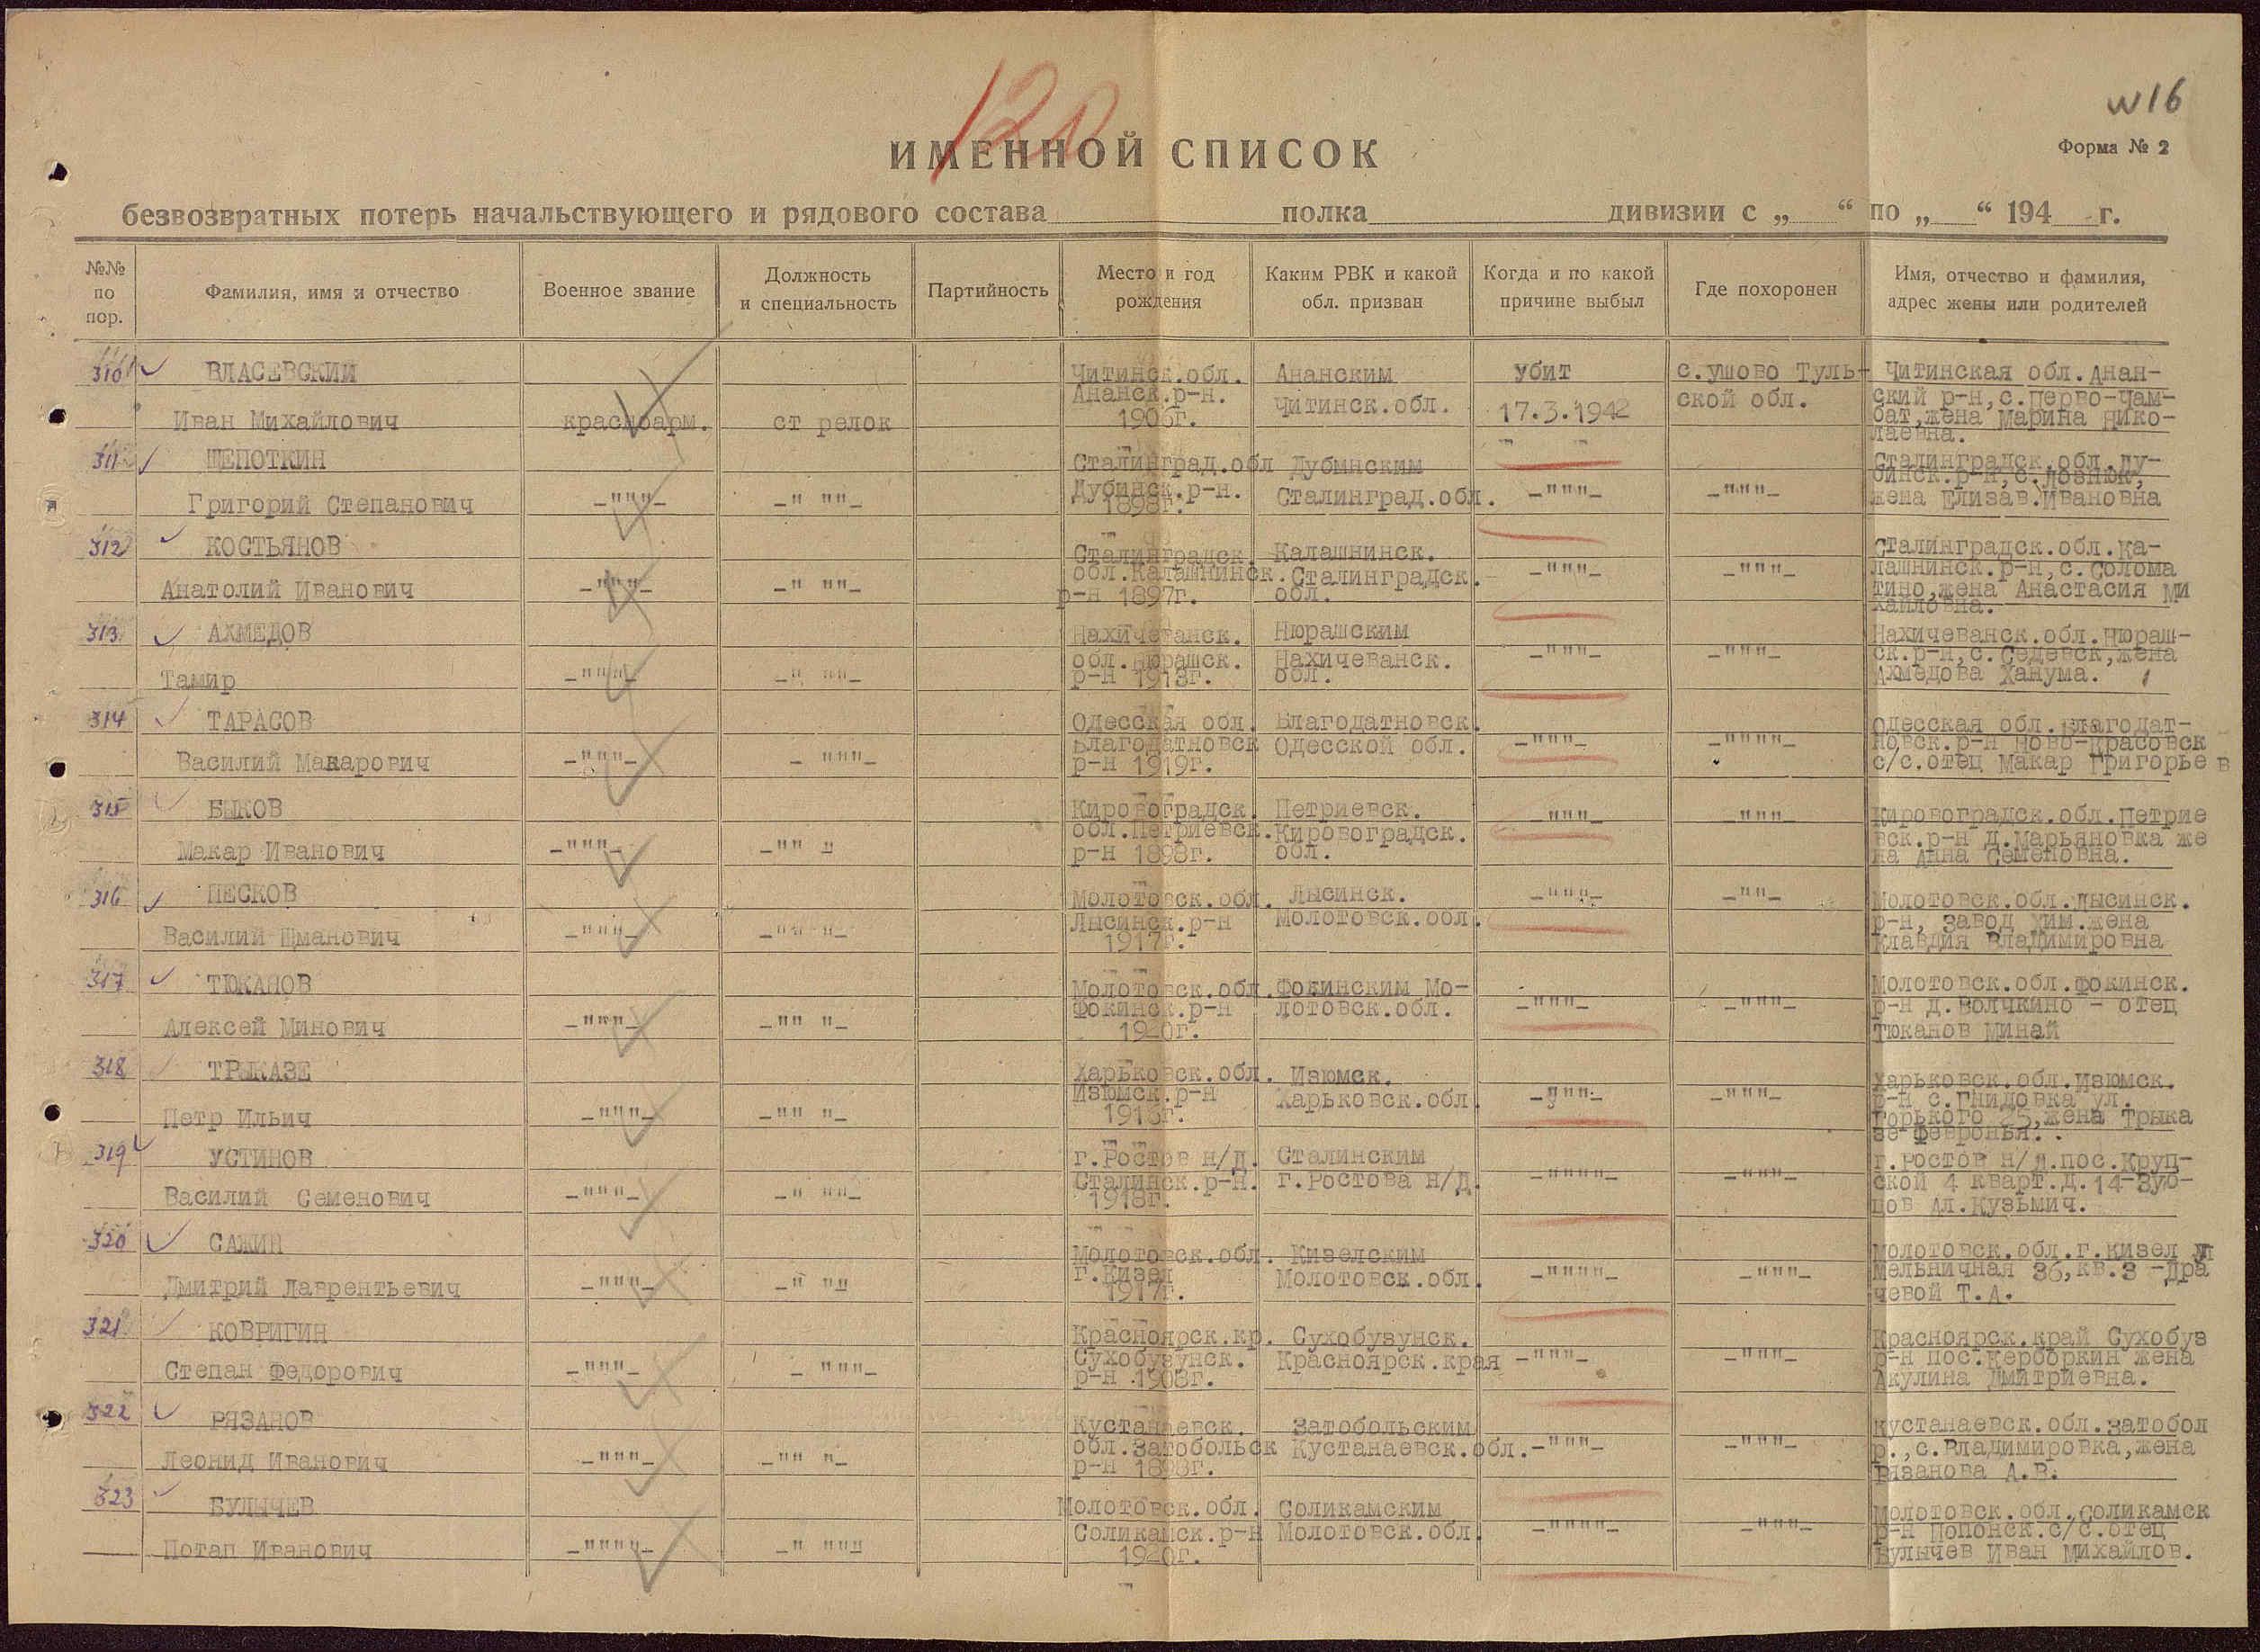 120
w16
ИМЕННОЙ СПИСОК
Форма № 2
безвозвратных потерь начальствующего и рядового состава полка дивизии с „ “ по „ “ 194 г.
№№ по пор.
Фамилия, имя и отчество
Военное звание
Должность и специальность
Партийность
Место и год рождения
Каким РВК и какой обл. призван
Когда и по какой причине выбыл
Где похоронен
Имя, отчество и фамилия, адрес жены или родителей
310 ВЛАСЕВСКИЙ
Иван Михайлович
красноарм.
ст релок
Читинск.обл.
Ананск.р-н.
1906г.
Ананским
Читинск.обл.
убит
17.3.1942
с.ушово Туль-
ской обл.
Читинская обл.Анан-
ский р-н,с.Перво-Чам-
бат,жена Марина Нико-
лаевна.
311 ЩЕПОТКИН
Григорий Степанович
-"""-
-" ""-
Сталинград.обл
Дубинск.р-н.
1898г.
Дубинским
Сталинград.обл.
-"""-
-"""-
Сталинградск.обл.Ду-
бинск.р-н,с.Лознюк,
жена Елизав.Ивановна
312 КОСТЬЯНОВ
Анатолий Иванович
-"""-
-" ""-
Сталинградск.
обл.Калашнинск.
р-н 1897г.
Калашнинск.
Сталинградск.
обл.
-"""-
-"""-
Сталинградск.обл.Ка-
лашнинск.р-н,с.Солома
тино,жена Анастасия Ми
хайловна.
313 АХМЕДОВ
Тамир
-""""-
-" ""-
Нахичеванск.
обл.Нюрашск.
р-н 1913г.
Нюрашским
Нахичеванск.
обл.
-"""-
-"""-
Нахичеванск.обл.Нюраш-
ск.р-н,с.Седевск,жена
Ахмедова Ханума.
314 ТАРАСОВ
Василий Макарович
-"""-
- """-
Одесская обл.
Благодатновск
р-н 1919г.
Благодатновск.
Одесской обл.
-"""-
-""""-
Одесская обл.Благодат-
новск.р-н Ново-Красовск
с/с.отец Макар Григорье в
315 БЫКОВ
Макар Иванович
-"""-
-"" "
Кировоградск.
обл.Петриевск.
р-н 1898г.
Петриевск.
Кировоградск.
обл.
-"""-
-"""-
Кировоградск.обл.Петрие
вск.р-н Д.Марьяновка же
на Анна Семеновна.
316 ПЕСКОВ
Василий Шманович
-"""-
-"" "-
Молотовск.обл.
Лысинск.р-н
1917г.
Лысинск.
Молотовск.обл.
-"""-
-""-
Молотовск.обл.Лысинск.
р-н, завод Хим.жена
Клавдия Владимировна
317 ТЮКАНОВ
Алексей Минович
-"""-
-"" "-
Молотовск.обл.
Фокинск.р-н
1920г.
Фокинским Мо-
лотовск.обл.
-"""-
-"""-
Молотовск.обл.Фокинск.
р-н д.Волчкино - отец
Тюканов Минай
318 ТРЫКАЗЕ
Петр Ильич
-"""-
-"" "-
Харьковск.обл.
Изюмск.р-н
Изюмск.
Харьковск.обл.
-"""-
-"""-
Харьковск.обл.Изюмск.
р-н с.Гнидовка ул.
Горького 25,жена Трыка
зе Февронья.
319 УСТИНОВ
Василий Семенович
-"""-
-" ""-
г.Ростов н/Д.
Сталинск.р-н.
1918г.
Сталинским
г.Ростова н/Д.
-""""-
-"""-
г.Ростов н/Д.пос.Круп-
ской 4 кварт.д.14-Зуб-
цов Ал.Кузьмич.
320 САЖИН
Дмитрий Лаврентьевич
-"""-
-" ""
Молотовск.обл.
г.Кизел
1917г.
Кизелским
Молотовск.обл.
-""""-
-"""-
Молотовск.обл.г.Кизел ул
Мельничная 36,кв.3 -Дра
чевой Т.А.
321 КОВРИГИН
Степан Федорович
-"""-
- """-
Красноярск.кр.
Сухобузунск.
р-н 1908г.
Сухобузунск.
Красноярск.края
-"""-
-"""-
Красноярск.край Сухобуз
р-н пос.Керборкин жена
Акулина Дмитриевна.
322 РЯЗАНОВ
Леонид Иванович
-"""-
-"" "-
Кустанаевск.
обл.Затобольск
р-н 1898г.
Затобольским
Кустанаевск.обл.
-"""-
-"""-
Кустанаевск.обл.Затобол
р.,с.Владимировка,жена
Рязанова А.В.
323 БУЛЫЧЕВ
Потап Иванович
-""""-
-" """
Молотовск.обл.
Соликамск.р-н
1920г.
Соликамским
Молотовск.обл.
-""""-
-"""-
Молотовск.обл.Соликамск
р-н Попонск.с/с.отец
Булычев Иван Михайлов.